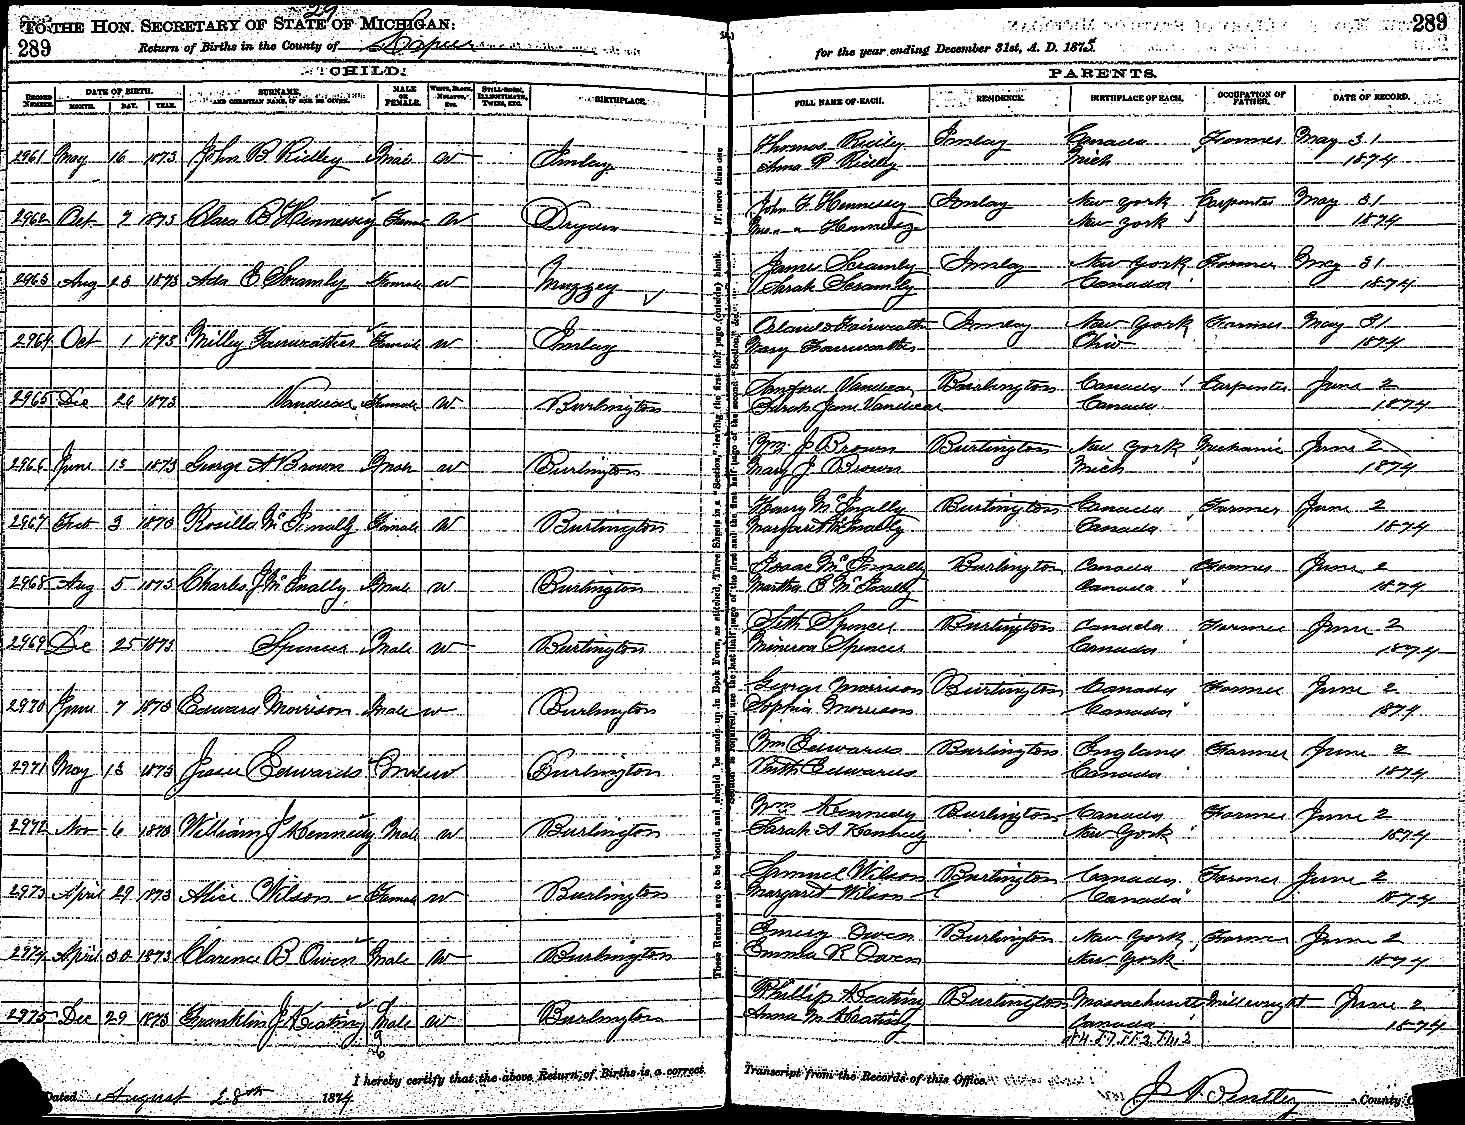 29
TO THE HON. SECRETARY OF STATE OF MICHIGAN:
289
289
Return of Births in the County of Lapeer
for the year ending December 31st, A. D. 1873.
CHILD.
PARENTS.
RECORD NUMBER. DATE OF BIRTH. MONTH. DAY. YEAR. SURNAME, AND CHRISTIAN NAME, IF ONE BE GIVEN. MALE OR FEMALE. WHITE, BLACK, MULATTO, ETC. STILL-BORN, ILLEGITIMATE, TWINS, ETC. BIRTHPLACE. FULL NAME OF EACH. RESIDENCE. BIRTHPLACE OF EACH. OCCUPATION OF FATHER. DATE OF RECORD.
2961 May 16 1873 John B Ridley Male W Imlay Thomas Ridley Imlay Canada Farmer May 31
Anna P Ridley Mich 1874
2962 Oct 7 1873 Clara B Hennessey Fema W Dryden John F Hennessey Imlay New York Carpenter May 31
Hennessey New York 1874
2963 Aug 23 1873 Ada E Scramly Female W Muzzey James Scramly Imlay New York Farmer May 31
Sarah Scramly Canada 1874
2964 Oct 1 1873 Milly Fairweather Female W Imlay Orlando Fairweath Imlay New York Farmer May 31
Mary Fairweather Ohio 1874
2965 Dec 20 1873 Vandecar Female W Burlington Sanford Vandecar Burlington Canada Carpenter June 2
Sarah Jane Vandecar Canada 1874
2966 June 13 1873 George A Brown Male W Burlington Wm J Brown Burlington New York Mechanic June 2
Mary J Brown Mich 1874
2967 3 1873 Rosilla McInally Female W Burlington Harry McInally Burlington Canada Farmer June 2
Margaret McInally Canada 1874
2968 Aug 5 1873 Charles J McInally Male W Burlington Isaac McInally Burlington Canada Farmer June 2
Martha E McInally Canada 1874
2969 Dec 25 1873 Spencer Male W Burlington Seth Spencer Burlington Canada Farmer June 2
Minerva Spencer Canada 1874
2970 June 7 1873 Edward Morrison Male W Burlington George Morrison Burlington Canada Farmer June 2
Sophia Morrison Canada 1874
2971 May 13 1873 Edwards Male W Burlington Wm Edwards Burlington England Farmer June 2
Edwards Canada 1874
2972 Nov 6 1873 William J Kennedy Male W Burlington Wm Kennedy Burlington Canada Farmer June 2
Sarah A Kennedy New York 1874
2973 April 29 1873 Alice Wilson Female W Burlington Samuel Wilson Burlington Canada Farmer June 2
Margaret Wilson Canada 1874
2974 April 30 1873 Clarence B Owen Male W Burlington Emery Owen Burlington New York Farmer June 2
Emma R Owen New York 1874
2975 Dec 29 1873 Franklin J Keating Male W Burlington Phillip Keating Burlington Massachusetts Millwright June 2
Anna M Keating Canada 1874
These Returns are to be bound, and should be made up in Book Form, as stitched, Three Sheets in a "Section," leaving the first half page (outside) blank. If more than one
Section is required, use the last half page of the first and the first half page of the second "Section," &c.
I hereby certify that the above Return of Births is a correct Transcript from the Records of this Office.
Dated August 28th 1874 J N Bentley County C